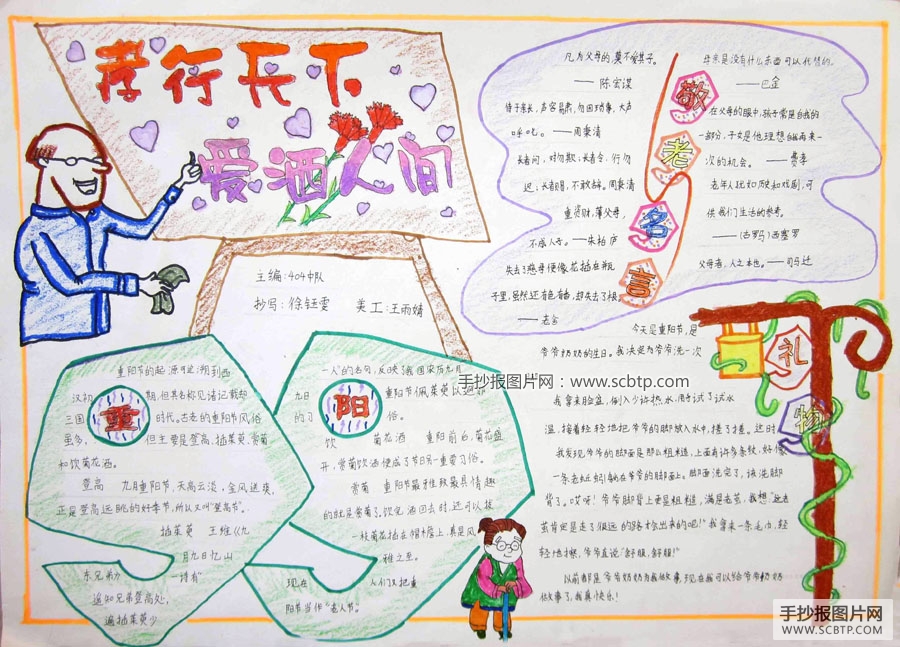 孝行天下
爱洒人间
主编:404中队
抄写:徐钰雯 美工:王雨婧
敬老名言
凡为父母的,莫不爱其子。
——陈宏谋
侍于亲长,声容易肃,勿因琐事,大声
呼叱。——周秉清
长者问,对勿欺;长者令,行勿
迟;长者赐,不敢辞。周秉清
重资财,薄父母,
不成人子。——朱柏庐
失去了慈母便像花插在瓶
子里,虽然还有色有香,却失去了根
——老舍
母亲是没有什么东西可以代替的。
——巴金
在父母的眼中,孩子常是自我的
一部分,子女是他理想自我再来一
次的机会。——费孝
老年人犹如历史和戏剧,可
供我们生活的参考。
——(古罗马)西塞罗
父母者,人之本也。——司马迁
重
重阳节的起源可追溯到西
汉初期,但其名称见诸记载超
三国时代。古老的重阳节风俗
虽多,但主要是登高、插茱萸、赏菊
和饮菊花酒。
登高 九月重阳节,天高云淡,金风送爽,
正是登高远眺的好季节,所以又叫“登高节”。
插茱萸 王维《九
月九日忆山
东兄弟》诗有“
遥知兄弟登高处,
遍插茱萸少
阳
一人”的名句,反映了我国宋历九月
九日重阳节佩茱萸以避邪
的习俗。
饮菊花酒 重阳前后,菊花盛
开,赏菊饮酒便成了节日另一重要习俗。
赏菊 重阳节最雅致最具情趣
的就是赏菊了。饮完酒回去时还可以拔
一枝菊花插在帽檐上,真是风
雅之至。
现在人们又把重
阳节当作“老人节”。
礼物
今天是重阳节,是
爷爷奶奶的生日。我决定为爷爷洗一次
我拿来脸盆,倒入少许热水,用手试了试水
温,接着轻轻地把爷爷的脚放入水中,搓了搓。这时
我发现爷爷的脚面是那么粗糙,上面有许多条纹,好像
一条老蚯蚓躺在爷爷的脚面上。脚面洗完了,该洗脚
背了。哎呀!爷爷脚背上更是粗糙,满是老茧,我想“这老
茧肯定是走了很远的路才磨出来的吧!”我拿来一条毛巾,轻
轻地擦,爷爷直说“舒服,舒服!”
以前都是爷爷奶奶为我做事,现在我可以给爷爷奶奶
做事了,我真快乐!
手抄报图片网:www.scbtp.com
手抄报图片网
WWW.SCBTP.COM